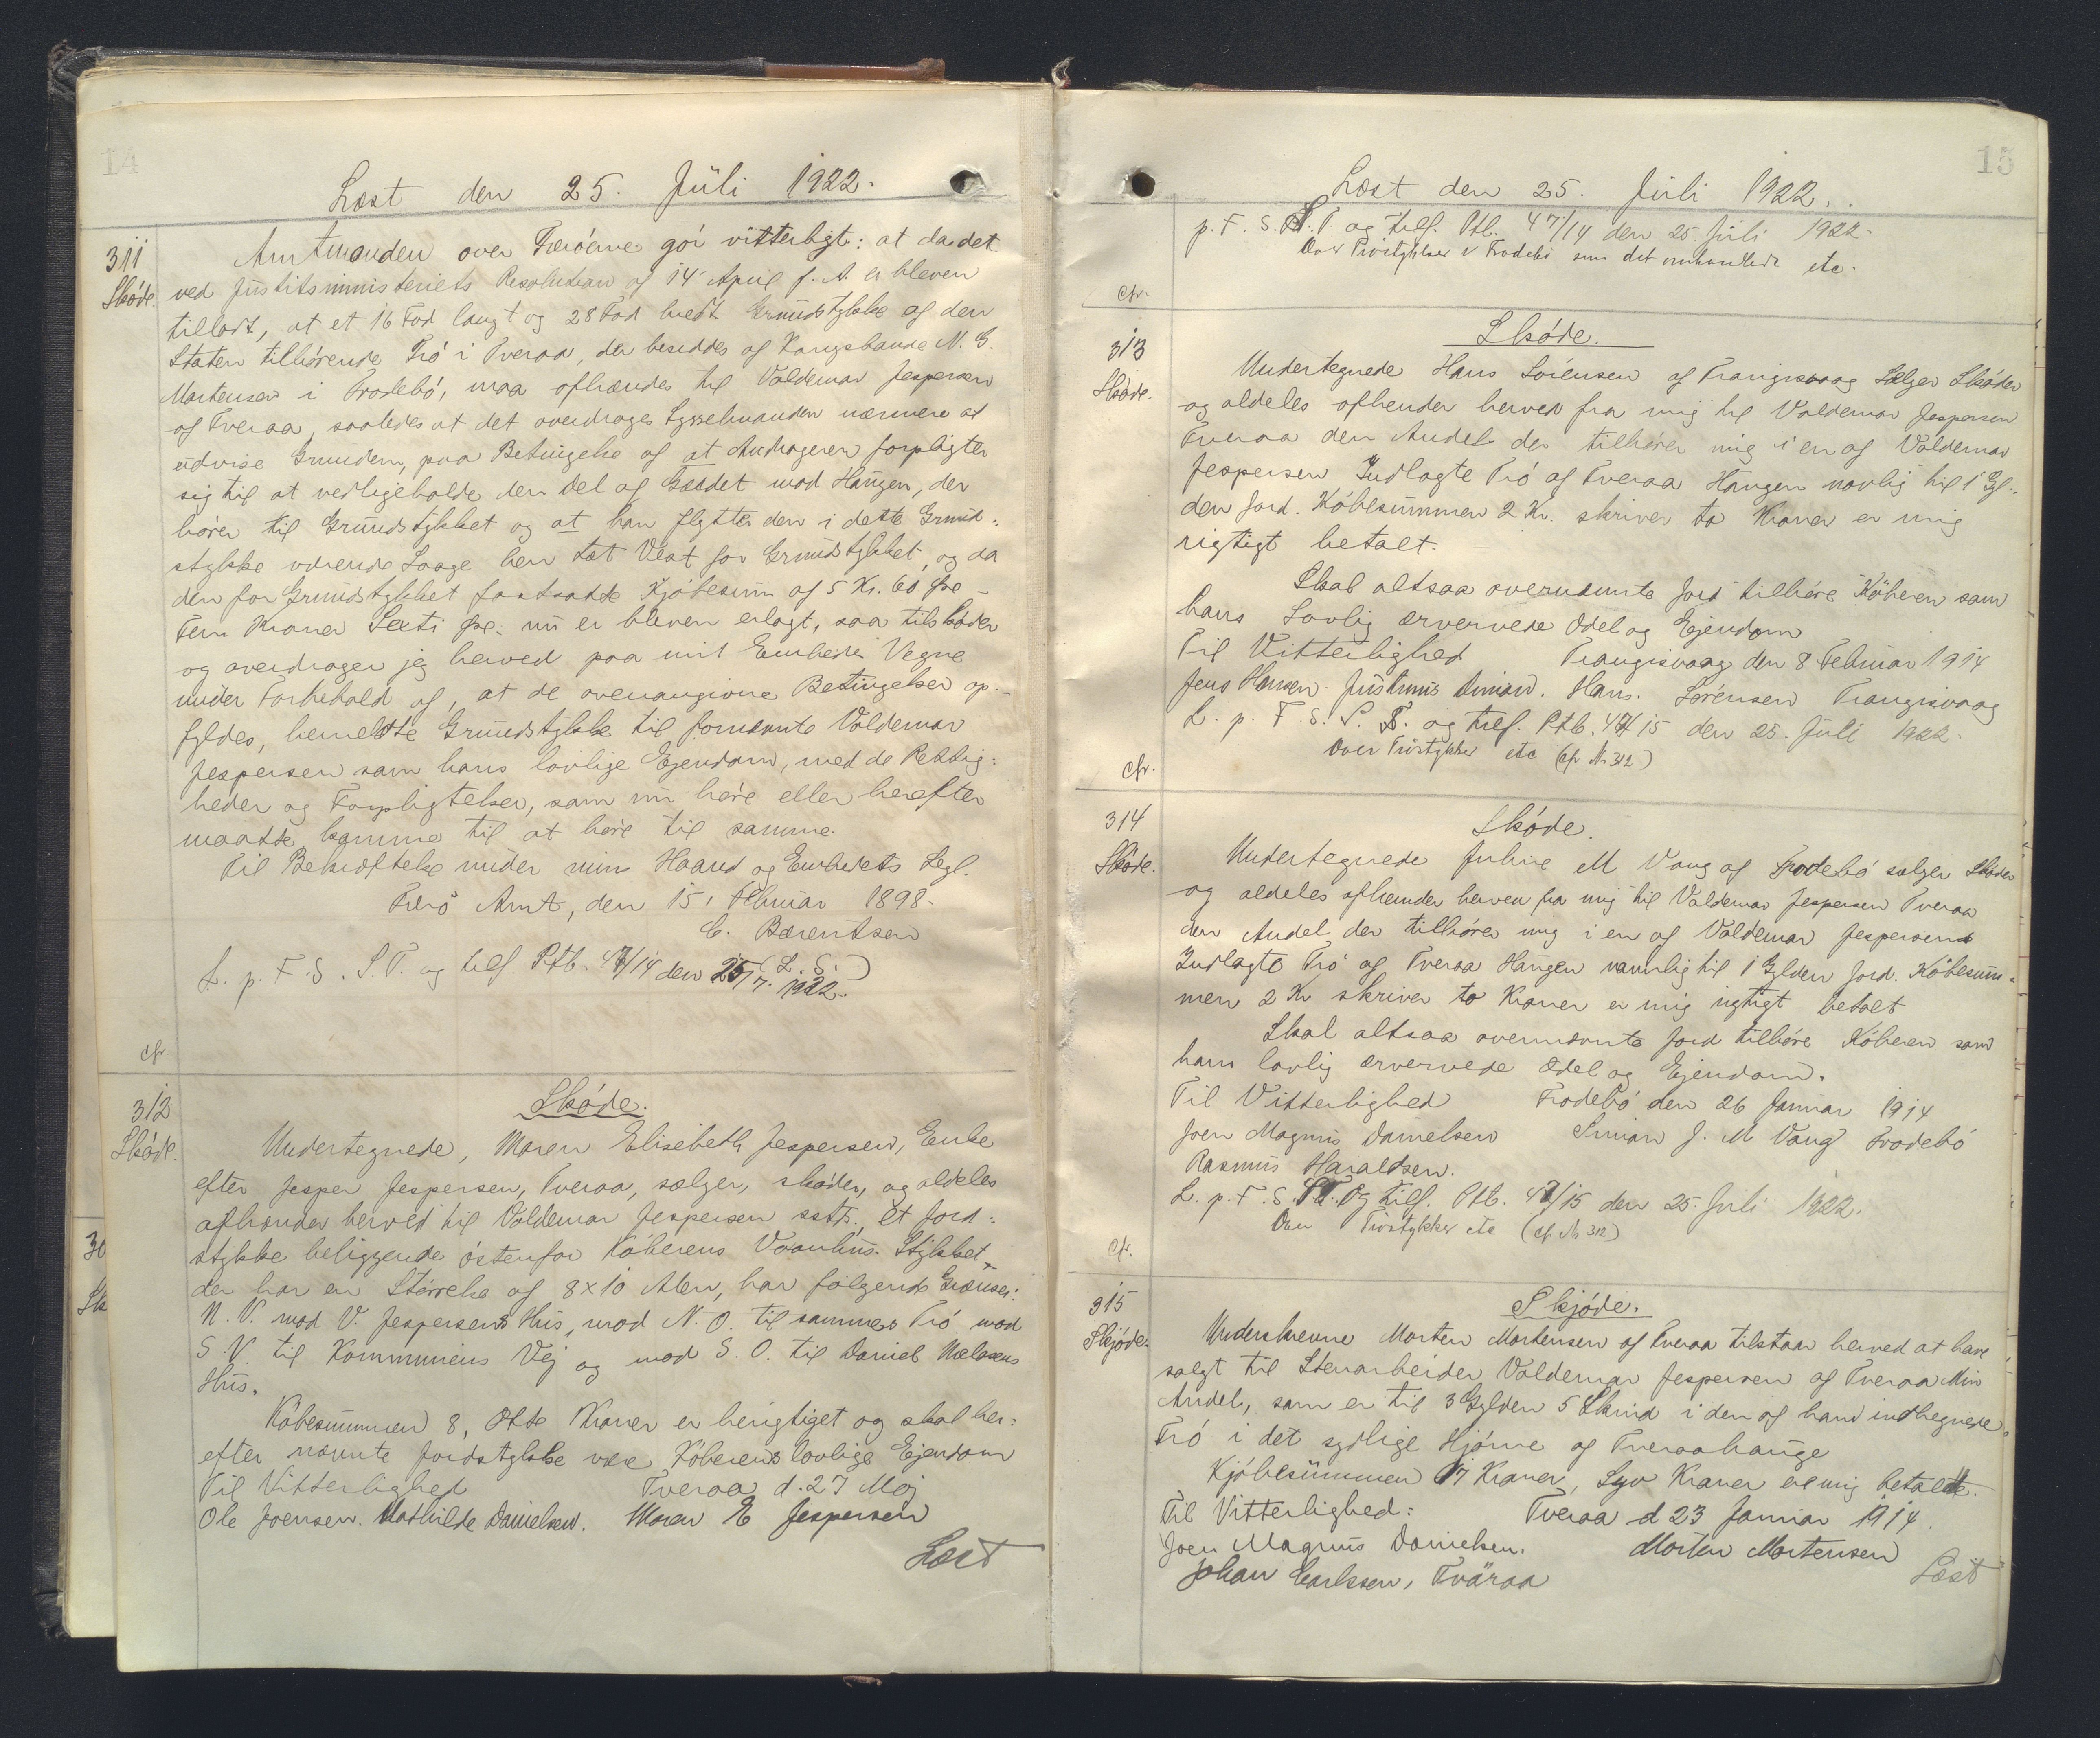 14
Læst den 25. Juli 1922.
311
Skøde
Amtmanden over Færøerne gør vitterligt: at da det
ved Justitsministeriets Resolution af 14 April f. A. er bleven
tilladt, at et 16 Fod langt og 28 Fod bredt Grundstykke af den
Staten tilhørende Trø i Tveraa, der besiddes af Kongsbonde N. G.
Mortensen i Frodebø, maa afhændes til Valdemar Jespersen
af Tveraa, saaledes at det overdrages Sysselmanden nærmere at
udvise Grunden, paa Betingelse af at Andrageren forpligter
sig til at vedligeholde den Del af Gærdet mod Haugen, der
hører til Grundstykket og at han flytter den i dette Grund-
stykke værende Laage hen tæt Vest for Grundstykket, og da
den for Grundstykket fastsatte Kjøbesum af 5 Kr. 60 Øre -
Fem Kroner Sexti Øre. nu er bleven erlagt, saa tilskøder
og overdrager jeg herved paa mit Embeds Vegne
under Forbehold af, at de ovenangivne Betingelser op-
fyldes, bemeldte Grundstykke til fornævnte Valdemar
Jespersen som hans lovlige Ejendom, med de Rettig-
heder og Forpligtelser, som nu høre eller herefter
maatte komme til at høre til samme.
Til Bekræftelse under min Haand og Embedets Segl.
Færø Amt, den 15, Februar 1898.
C. Bærentsen
(L. S.)
L. p. F. S. S. T. og tilf. Ptb. 47/14 den 25/7. 1922.
cfr
312
Skøde.
Skøde.
Undertegnede, Maren Elisebeth Jespersen, Enke
efter Jesper Jespersen, Tveraa, sælger, skøder, og aldeles
afhænder herved til Valdemar Jespersen ssts. et Jord-
stykke beliggende østenfor Køberens Vaanhus. Stykket,
der har en Størrelse af 8x10 Alen, har følgende Grænser:
N. V. mod V. Jespersens Hus, mod N. O. til sammes Trø mod
S. V. til Kommunens Vej og mod S. O. til Daniel Nielsens
Hus.
Købesummen 8, Otte Kroner er berigtiget og skal her-
efter nævnte Jordstykke være Køberens lovlige Ejendom
Til Vitterlighed Tveraa d. 27 Maj
Ole Joensen. Mathilde Danielsen. Maren E Jespersen
Læst
30
Sk
15
Læst den 25. Juli 1922.
p. F. S. S. T. og tilf. Ptb. 47/14 den 25. Juli 1922.
Over Trøstykker i Frodebø som det omhandlede etc.
cfr.
313
Skøde.
Skøde.
Undertegnede Hans Sørensen af Trangisvaag Sælger Skøder
og aldeles afhender herved fra mig til Valdemar Jespersen
Tveraa den Andel der tilhører mig i en af Valdemar
Jespersen Indlagte Trø af Tveraa Haugen navlig til 1 Gyl-
den Jord. Købesummen 2 Kr. skriver to Kroner er mig
rigtigt betalt.
Skal altsaa overnævnte Jord tilhøre Køberen som
hans Lovlig ærvervede Odel og Ejendom
Til Vitterlighed Trangisvaag den 8 Februar 1914
Jens Hansen. Justinus Simard. Hans. Sørensen Trangisvaag
L. p. F. S. S. T. og tilf. Ptb. 47/15 den 25. Juli 1922.
Over Trøstykker etc (cfr Nr. 312)
cfr.
314
Skøde.
Skøde.
Undertegnede Juline M Vang af Frodebø sælger Skøder
og aldeles afhender herved fra mig til Valdemar Jespersen Tveraa
den Andel der tilhører mig i en af Valdemar Jespersens
Indlagte Trø af Tveraa Haugen navnlig til 1 Gylden Jord. Købesum-
men 2 Kr skriver to Kroner er mig rigtigt betalt
Skal altsaa overnævnte Jord tilhøre Køberen som
hans lovlig ærvervede Odel og Ejendom.
Til Vitterlighed Frodebø den 26 Januar 1914
Joen Magnus Danielsen Simon J. M Vang Frodebø
Rasmus Haraldsen.
L. p. F. S. S. T. og tilf. Ptb. 47/15 den 25. Juli 1922.
Over Trøstykker etc (cf. Nr. 312)
cfr.
315
Skjøde.
Skjøde.
Underskrevne Morten Mortensen af Tveraa tilstaar herved at have
solgt til Stenarbeider Valdemar Jespersen af Tveraa Min
Andel, som er til 3 Gylden 5 Skind i den af ham indhegnede
Trø i det sydlige Hjørne af Tveraahauge
Kjøbesummen 7 Kroner, Syv Kroner er mig betalt.
Til Vitterlighed: Tveraa d 23 Januar 1914.
Joen Magnus Danielsen. Morten Mortensen
Johan Carlsen, Tväraa
Læst